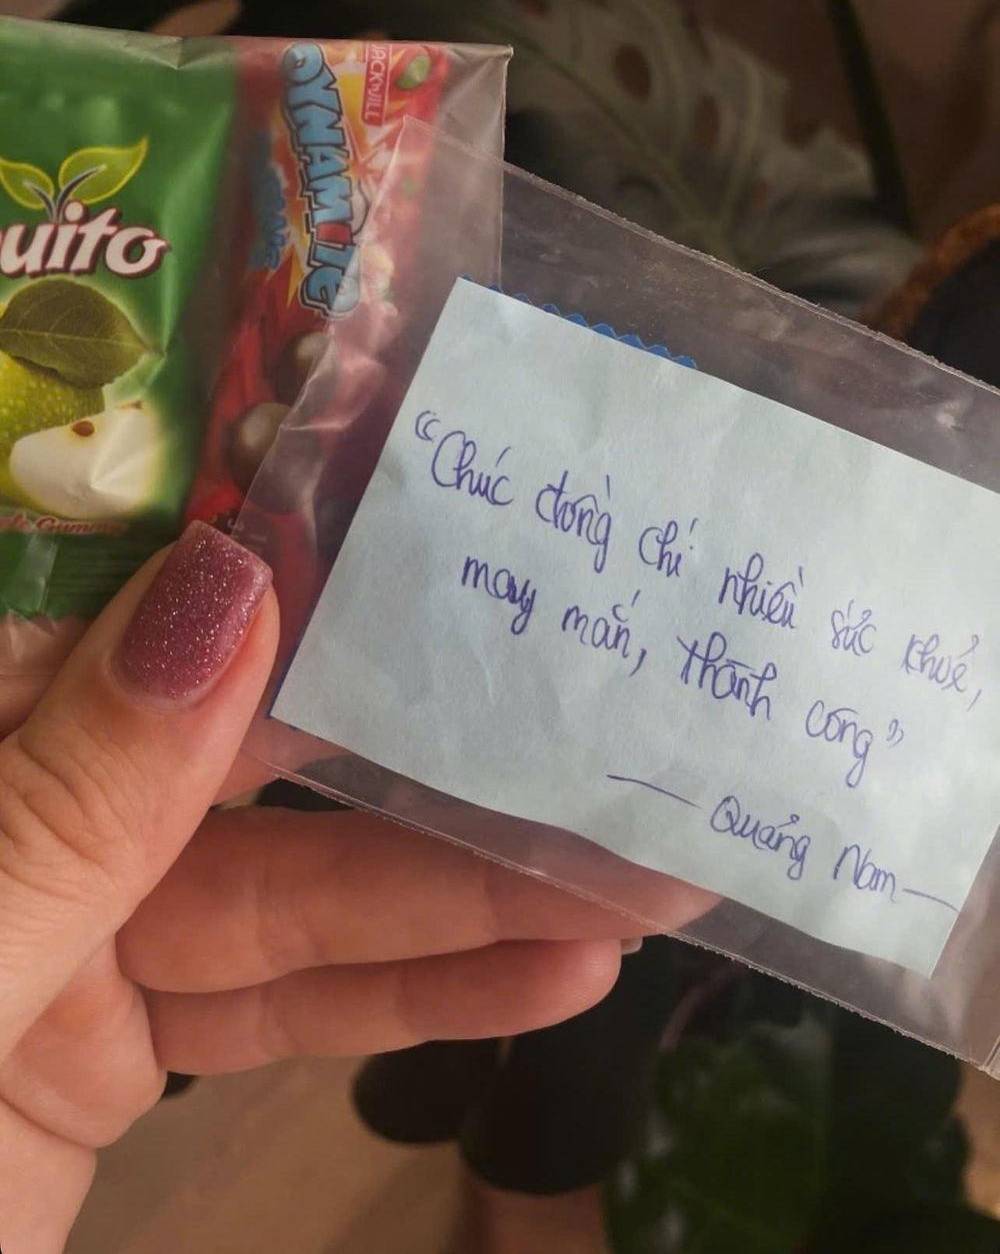 uito
JACK'nJILL
DYNAMITe
“Chúc đồng chí nhiều sức khoẻ,
may mắn, thành công”
— Quảng Nam —